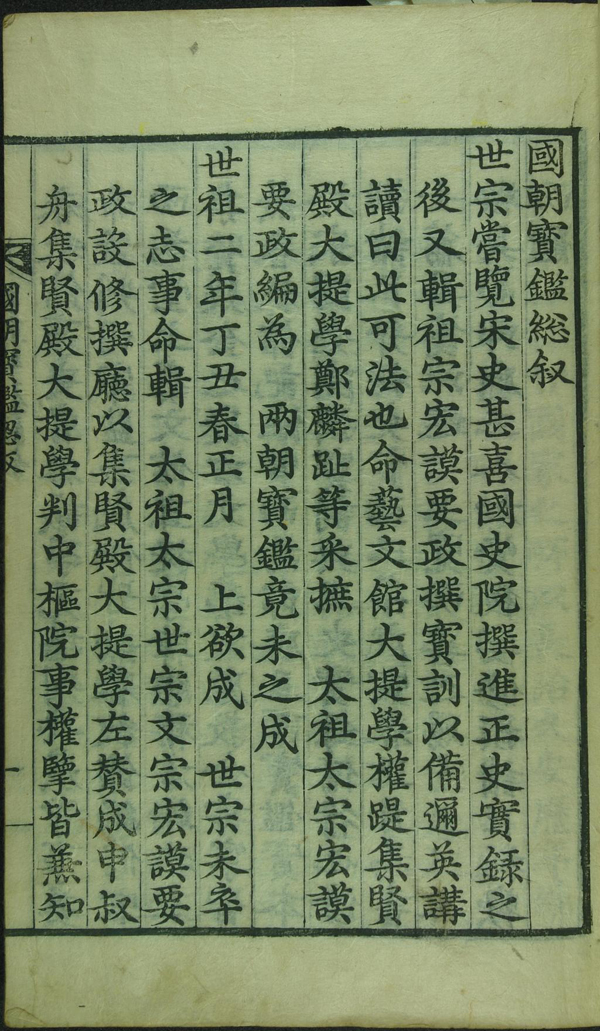 國朝寶鑑総叙
世宗嘗覽宋史甚喜國史院撰進正史實録之
後又輯祖宗宏謨要政撰寶訓以備邇英講
讀曰此可法也命藝文館大提學權踶集賢
殿大提學鄭麟趾等采摭 太祖太宗宏謨
要政編為 兩朝寶鑑竟未之成
世祖二年丁丑春正月 上欲成 世宗未卒
之志事命輯 太祖太宗世宗文宗宏謨要
政設修撰廳以集賢殿大提學左賛成申叔
舟集賢殿大提學判中樞院事權擥皆兼知
國朝寶鑑總叙
一